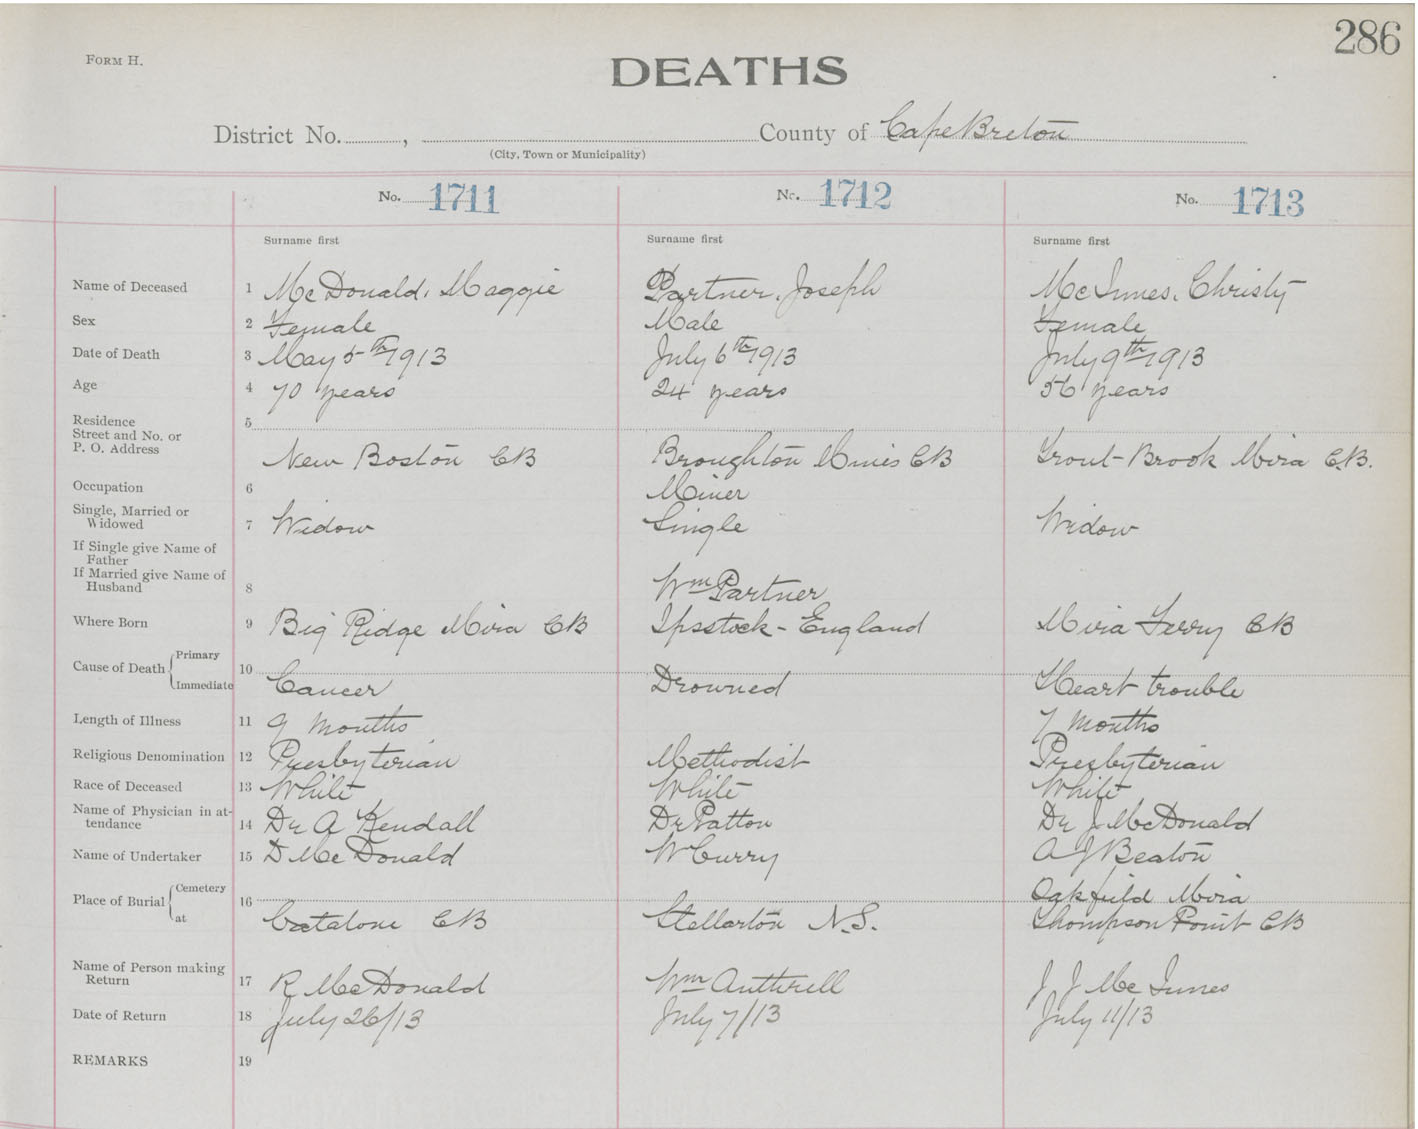 286
FORM H.
DEATHS
District No. , County of Cape Breton
(City, Town or Municipality)
No. 1711 No. 1712 No. 1713
Surname first Surname first Surname first
Name of Deceased 1 McDonald, Maggie Partner, Joseph McInnes, Christy
Sex 2 Female Male Female
Date of Death 3 May 5th 1913 July 6th 1913 July 9th 1913
Age 4 70 years 24 years 56 years
Residence 5
Street and No. or
P. O. Address New Boston CB Broughton Mines CB Trout Brook Mira C.B.
Occupation 6 Miner
Single, Married or
Widowed 7 Widow Single Widow
If Single give Name of
Father
If Married give Name of
Husband 8 Wm Partner
Where Born 9 Big Ridge Mira CB Ipsstock - England Mira Ferry CB
Cause of Death Primary 10
Immediate Cancer Drowned Heart trouble
Length of Illness 11 9 months 7 months
Religious Denomination 12 Presbyterian Methodist Presbyterian
Race of Deceased 13 White White White
Name of Physician in at-
tendance 14 Dr A Kendall Dr Patton Dr J McDonald
Name of Undertaker 15 D McDonald W Curry A J Beaton
Place of Burial Cemetery 16 Oakfield Mira
at Catalone CB Stellarton N.S. Thompson Point CB
Name of Person making
Return 17 R McDonald Wm J J McInnes
Date of Return 18 July 26/13 July 7/13 July 11/13
REMARKS 19